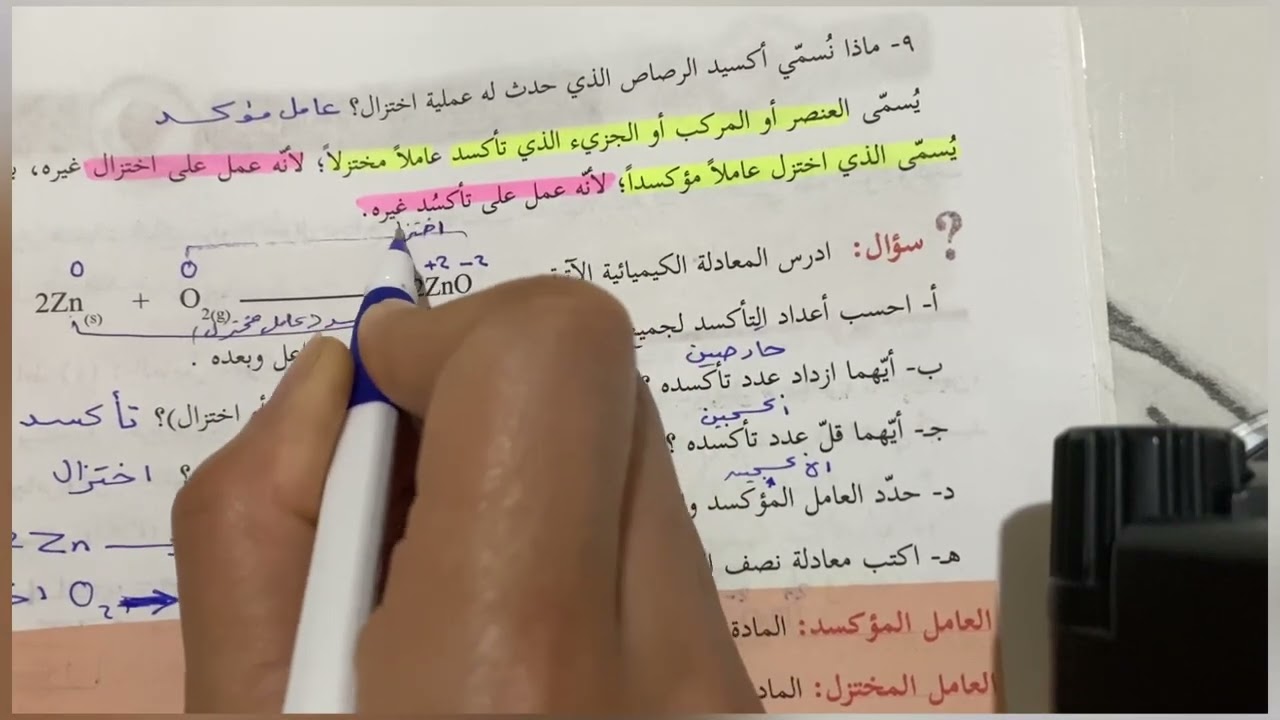 ٩- ماذا نُسمّي أكسيد الرصاص الذي حدث له عملية اختزال؟ عامل مؤكسد
يُسمّى العنصر أو المركب أو الجزيء الذي تأكسد عاملاً مختزلاً؛ لأنّه عمل على اختزال غيره،
يُسمّى الذي اختزل عاملاً مؤكسداً؛ لأنّه عمل على تأكسُد غيره.
؟ سؤال: ادرس المعادلة الكيميائية الآتية
0 0 +2 -2
2Zn(s) + O2(g) 2ZnO
(عامل مختزل)
أ- احسب أعداد التأكسد لجميع
وبعده .
خارصين
ب- أيّهما ازداد عدد تأكسده
اختزال)؟ تأكسد
جـ- أيّهما قلّ عدد تأكسده ؟
؟ اختزال
د- حدّد العامل المؤكسد و
Zn
هـ- اكتب معادلة نصف
O2 →
العامل المؤكسد: المادة
العامل المختزل: